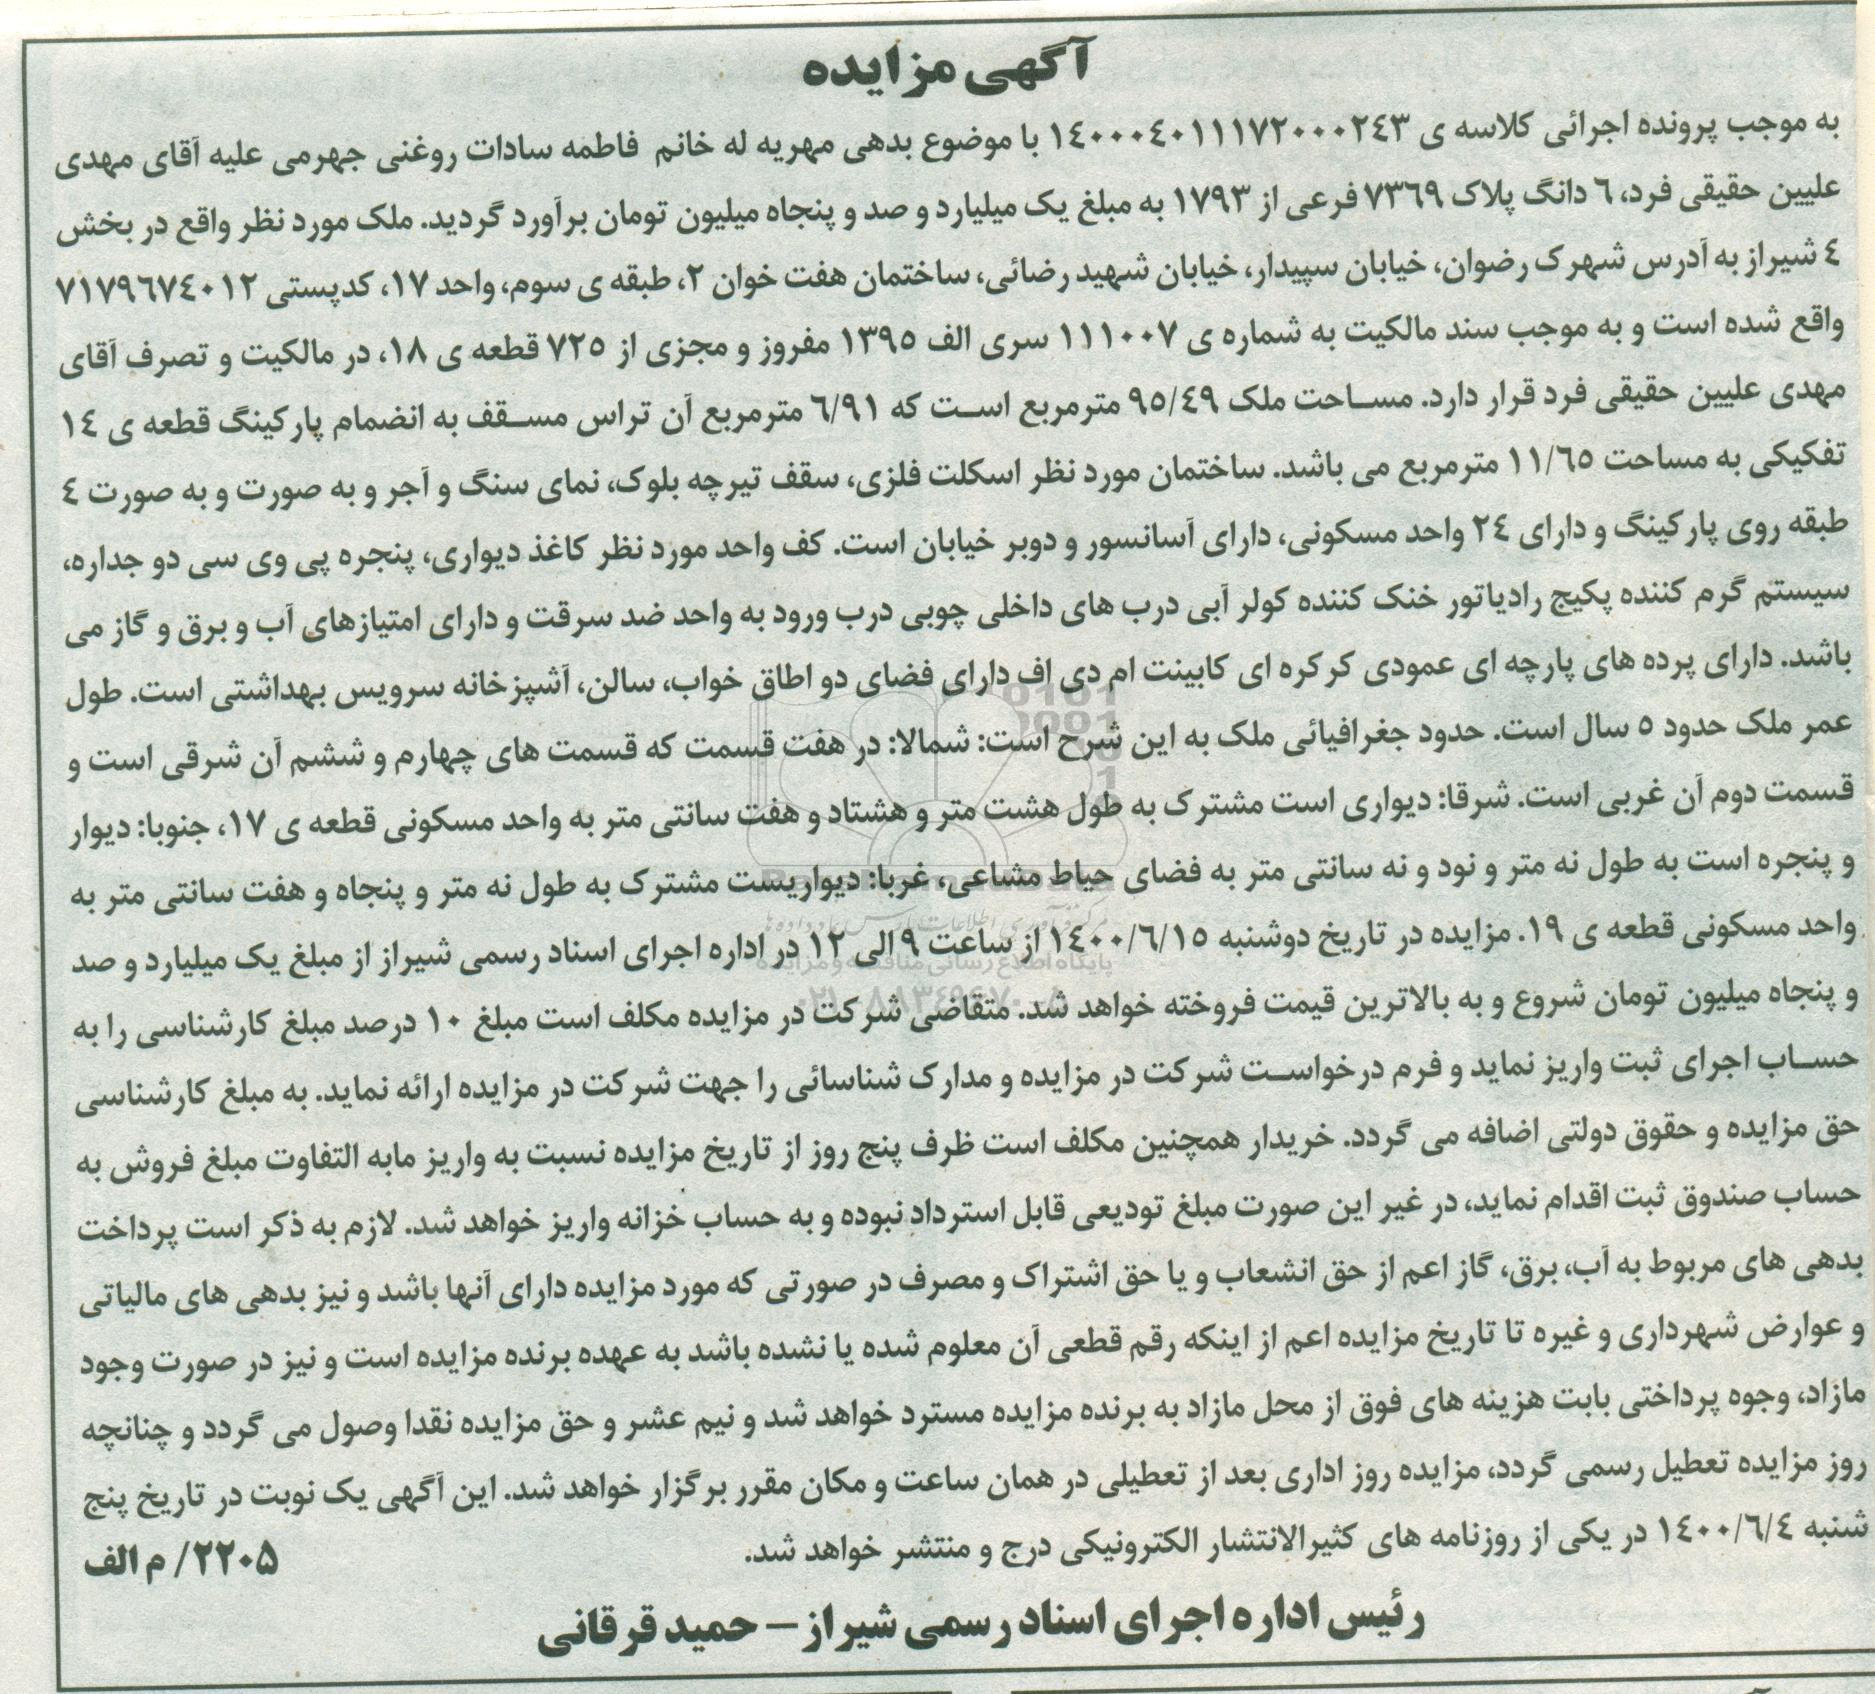 آگهی مزایده
به موجب پرونده اجرائی کلاسه ی ۱۴۰۰۰۴۰۱۱۱۷۲۰۰۰۲۴۳ با موضوع بدهی مهریه له خانم فاطمه سادات روغنی جهرمی علیه آقای مهدی
علیین حقیقی فرد، ۶ دانگ پلاک ۷۳۶۹ فرعی از ۱۷۹۳ به مبلغ یک میلیارد و صد و پنجاه میلیون تومان برآورد گردید. ملک مورد نظر واقع در بخش
۴ شیراز به آدرس شهرک رضوان، خیابان سپیدار، خیابان شهید رضائی، ساختمان هفت خوان ۲، طبقه ی سوم، واحد ۱۷، کدپستی ۷۱۷۹۶۷۴۰۱۲
واقع شده است و به موجب سند مالکیت به شماره ی ۱۱۱۰۰۷ سری الف ۱۳۹۵ مفروز و مجزی از ۷۲۵ قطعه ی ۱۸، در مالکیت و تصرف آقای
مهدی علیین حقیقی فرد قرار دارد. مساحت ملک ۹۵/۴۹ مترمربع است که ۶/۹۱ مترمربع آن تراس مسقف به انضمام پارکینگ قطعه ی ۱۴
تفکیکی به مساحت ۱۱/۶۵ مترمربع می باشد. ساختمان مورد نظر اسکلت فلزی، سقف تیرچه بلوک، نمای سنگ و آجر و به صورت و به صورت ۴
طبقه روی پارکینگ و دارای ۲۴ واحد مسکونی، دارای آسانسور و دوبر خیابان است. کف واحد مورد نظر کاغذ دیواری، پنجره پی وی سی دو جداره،
سیستم گرم کننده پکیج رادیاتور خنک کننده کولر آبی درب های داخلی چوبی درب ورود به واحد ضد سرقت و دارای امتیازهای آب و برق و گاز می
باشد. دارای پرده های پارچه ای عمودی کرکره ای کابینت ام دی اف دارای فضای دو اطاق خواب، سالن، آشپزخانه سرویس بهداشتی است. طول
عمر ملک حدود ۵ سال است. حدود جغرافیائی ملک به این شرح است: شمالا: در هفت قسمت که قسمت های چهارم و ششم آن شرقی است و
قسمت دوم آن غربی است. شرقا: دیواری است مشترک به طول هشت متر و هشتاد و هفت سانتی متر به واحد مسکونی قطعه ی ۱۷، جنوبا: دیوار
و پنجره است به طول نه متر و نود و نه سانتی متر به فضای حیاط مشاعی، غربا: دیواریست مشترک به طول نه متر و پنجاه و هفت سانتی متر به
واحد مسکونی قطعه ی ۱۹. مزایده در تاریخ دوشنبه ۱۴۰۰/۶/۱۵ از ساعت ۹ الی ۱۲ در اداره اجرای اسناد رسمی شیراز از مبلغ یک میلیارد و صد
و پنجاه میلیون تومان شروع و به بالاترین قیمت فروخته خواهد شد. متقاضی شرکت در مزایده مکلف است مبلغ ۱۰ درصد مبلغ کارشناسی را به
حساب اجرای ثبت واریز نماید و فرم درخواست شرکت در مزایده و مدارک شناسائی را جهت شرکت در مزایده ارائه نماید. به مبلغ کارشناسی
حق مزایده و حقوق دولتی اضافه می گردد. خریدار همچنین مکلف است ظرف پنج روز از تاریخ مزایده نسبت به واریز مابه التفاوت مبلغ فروش به
حساب صندوق ثبت اقدام نماید، در غیر این صورت مبلغ تودیعی قابل استرداد نبوده و به حساب خزانه واریز خواهد شد. لازم به ذکر است پرداخت
بدهی های مربوط به آب، برق، گاز اعم از حق انشعاب و یا حق اشتراک و مصرف در صورتی که مورد مزایده دارای آنها باشد و نیز بدهی های مالیاتی
و عوارض شهرداری و غیره تا تاریخ مزایده اعم از اینکه رقم قطعی آن معلوم شده یا نشده باشد به عهده برنده مزایده است و نیز در صورت وجود
مازاد، وجوه پرداختی بابت هزینه های فوق از محل مازاد به برنده مزایده مسترد خواهد شد و نیم عشر و حق مزایده نقدا وصول می گردد و چنانچه
روز مزایده تعطیل رسمی گردد، مزایده روز اداری بعد از تعطیلی در همان ساعت و مکان مقرر برگزار خواهد شد. این آگهی یک نوبت در تاریخ پنج
شنبه ۱۴۰۰/۶/۴ در یکی از روزنامه های کثیرالانتشار الکترونیکی درج و منتشر خواهد شد.
۲۲۰۵/ م الف
رئیس اداره اجرای اسناد رسمی شیراز – حمید قرقانی